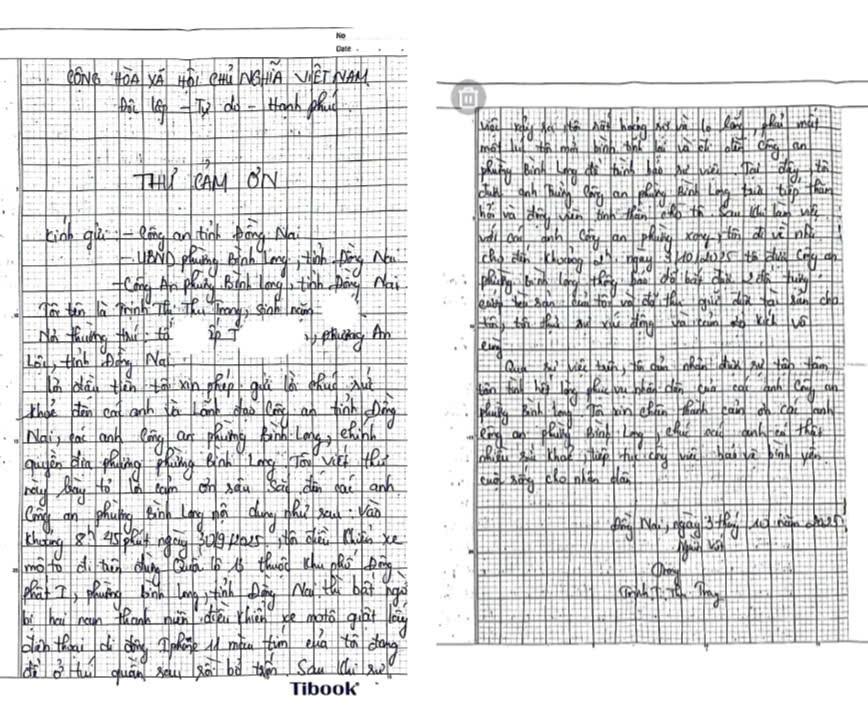 No
Date
CỘNG HÒA XÃ HỘI CHỦ NGHĨA VIỆT NAM
Độc lập - Tự do - Hạnh phúc
THƯ CẢM ƠN
Kính gửi: - Công an tỉnh Đồng Nai
- UBND phường Bình Long, tỉnh Đồng Nai
- Công An phường Bình Long, tỉnh Đồng Nai
Tôi tên là Trịnh Thị Thu Trang, sinh năm
Nơi thường trú: tổ ấp T , phường An
Lộc, tỉnh Đồng Nai
Lời đầu tiên tôi xin phép gửi lời chúc sức
khoẻ đến các anh là Lãnh đạo Công an tỉnh Đồng
Nai, các anh Công an phường Bình Long, chính
quyền địa phương phường Bình Long. Tôi viết thư
này bày tỏ lời cảm ơn sâu sắc đến các anh
Công an phường Bình Long nội dung như sau: Vào
khoảng 8h 45 phút ngày 30/9/2025, tôi điều khiển xe
mô tô đi trên đường Quốc lộ 13 thuộc khu phố Đông
Phất I, phường Bình Long, tỉnh Đồng Nai thì bất ngờ
bị hai nam thanh niên điều khiển xe môtô giật lấy
điện thoại di động Iphone 11 màu tím của tôi đang
để ở túi quần sau rồi bỏ trốn. Sau khi sự
việc xảy ra, tôi rất hoảng sợ và lo lắng, phải mất
một lúc tôi mới bình tĩnh lại và đi đến Công an
phường Bình Long để trình báo sự việc. Tại đây, tôi
được anh Công an phường Bình Long trực tiếp thăm
hỏi và động viên tinh thần cho tôi. Sau khi làm việc
với các anh Công an phường xong, tôi đi về nhà
cho đến khoảng ngày /10/2025 tôi được Công an
phường bình long thông báo đã bắt được 2 đối tượng
cướp tài sản của tôi và đã thu giữ được tài sản cho
tôi, tôi thật sự xúc động và cảm kích vô
cùng
Qua sự việc trên, tôi cảm nhận được sự tận tâm,
tận tình hết lòng phục vụ nhân dân của các anh Công an
phường Bình Long. Tôi xin chân thành cảm ơn các anh
Công an phường Bình Long, chúc các anh có thật
nhiều sức khoẻ, tiếp tục công việc bảo vệ bình yên
cuộc sống cho nhân dân
Đồng Nai, ngày 3 tháng 10 năm 2025
Người viết
Trang
Trịnh T. Thu Trang
Tibook